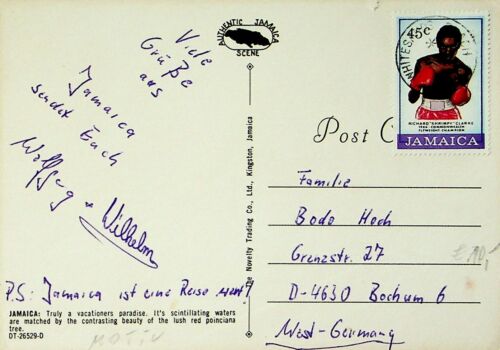 AUTHENTIC JAMAICA
SCENE
Viele
Grüße
aus
Jamaica
sendet Euch
Wolfgang + Wilhelm
P.S: Jamaica ist eine Reise wert!
JAMAICA: Truly a vacationers paradise. It's scintillating waters
are matched by the contrasting beauty of the lush red poinciana
tree.
DT-26529-D
MOTIV
The Novelty Trading Co., Ltd., Kingston, Jamaica
Post C
WHITESA
45c
RICHARD "SHRIMPY" CLARKE
1986 COMMONWEALTH
FLYWEIGHT CHAMPION
JAMAICA
Familie
Bodo Hoch
Grenzstr. 27
D-4630 Bochum 6
West-Germany